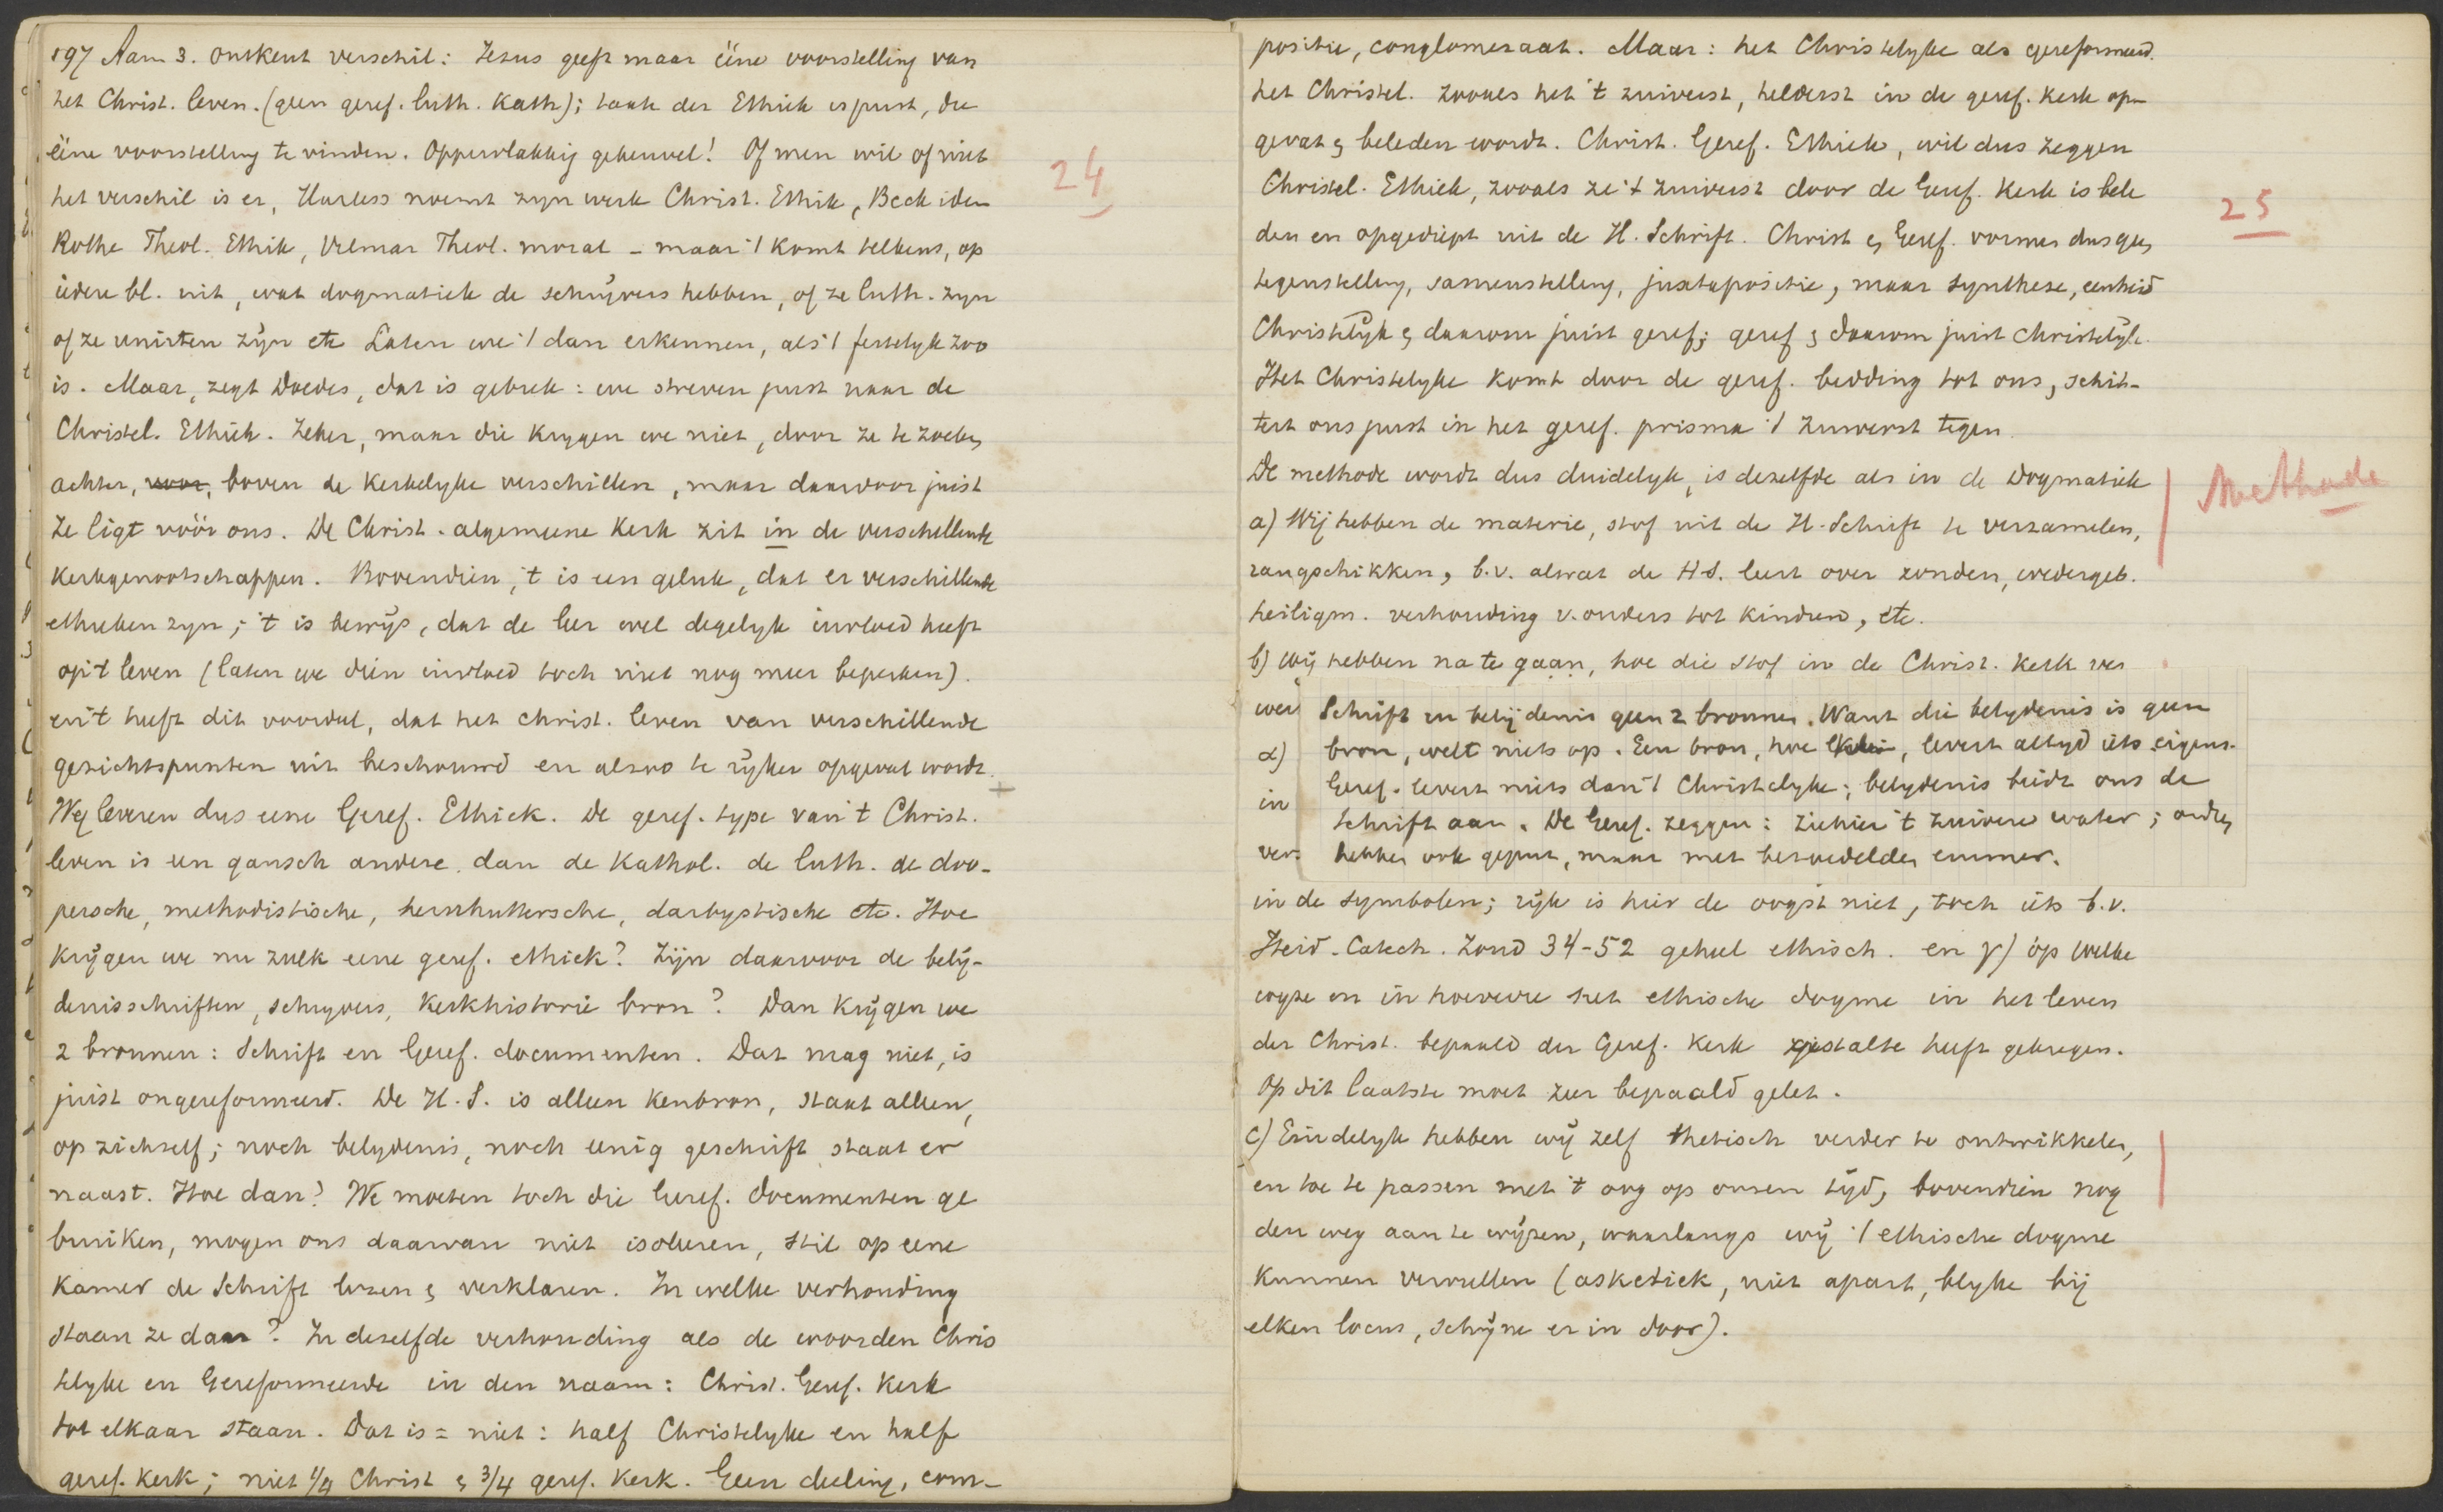 197 Aanm 3. ontkent verschil: Jesus geeft maar ééne voorstelling van
het Christ. leven. (geen geref. luth. Kath); taak der Ethiek is juist, die
ééne voorstelling te vinden. Oppervlakkig gekeuvel! Of men wil of niet
het verschil is er, Harless noemt zijn werk Christ. Ethik, Beck idem
Rothe Theol. Ethik, Vilmar Theol. moral – maar 't komt telkens, op
iedere bl. uit, wat dogmatiek de schrijvers hebben, of ze luth. zijn
of ze unirten zijn etc Laten we 't dan erkennen, als 't feitelyk zoo
is. Maar, zegt Doedes, dat is gebrek: we streven juist naar de
Christel. Ethiek. Zeker, maar die krygen we niet, door ze te zoeken
achter, voor, boven de Kerkelyke verschillen, maar daardoor juist
Ze ligt vóór ons. De Christ. algemeene Kerk zit in de verschillende
Kerkgenootschappen. Bovendien, 't is een geluk, dat er verschillende
ethieken zyn; 't is bewijs, dat de leer wel degelyk invloed heeft
op 't leven (laten we dien invloed toch niet nog meer beperken).
en 't heeft dit voordeel, dat het christ. leven van verschillende
gezichtspunten uit beschouwd en alzoo te ryker opgevat wordt.
Wy leveren dus eene Geref. Ethiek. De geref. type van 't Christ.
leven is een gansch andere dan de Kathol. de luth. de doo-
persche, methodistische, hernhuttersche, darbystische etc. Hoe
krijgen we nu zulk eene geref. ethiek? Zijn daarvoor de belij-
denisschriften, schryvers, Kerkhistorie bron? Dan krijgen we
2 bronnen: Schrift en Geref. documenten. Dat mag niet, is
juist ongereformeerd. De H.S. is alleen Kenbron, staat alleen,
op zichzelf; noch belydenis, noch eenig geschrift staat er
naast. Hoe dan? We moeten toch die Geref. documenten ge
bruiken, mogen ons daarvan niet isoleeren, stil op eene
Kamer de Schrift lezen & verklaren. In welke verhouding
staan ze dan? In dezelfde verhouding als de woorden Chris
telyke en Gereformeerde in den naam: Christ. Geref. Kerk
tot elkaar staan. Dat is = niet: half Christelyke en half
geref. Kerk; niet 1/4 Christ & 3/4 geref. Kerk. Geen deeling, com-
24
positie, conglomeraat. Maar: het Christelyke als gereformeerd.
het Christel. zooals het 't zuiverst, helderst in de geref. Kerk op-
gevat & beleden wordt. Christ. Geref. Ethiek, wil dus zeggen
Christel. Ethiek, zooals ze 't zuiverst door de Geref. Kerk is bele
den en opgediept uit de H. Schrift. Christ & Geref. vormen dus geen
tegenstelling, samenstelling, juxtapositie, maar synthese, eenheid
Christelijk & daarom juist geref; geref & daarom juist christelijk.
Het Christelyke komt door de geref. bedding tot ons, schit-
tert ons juist in het geref. prisma 't zuiverst tegen.
De methode wordt dus duidelyk, is dezelfde als in de Dogmatiek
a) Wij hebben de materie, stof uit de H. Schrift te verzamelen,
rangschikken, b.v. alwat de H.S. leert over zonden, wedergeb.
heiligm. verhouding v. ouders tot kinderen, etc.
b) wij hebben na te gaan, hoe die stof in de Christ. Kerk ver
wer
α)
in
ver.
Schrift en belijdenis geen 2 bronnen. Want die belydenis is geen
bron, welt niets op. Een bron, hoe klein, levert altyd iets eigens.
Geref. levert niets dan 't Christelyke; belydenis beidt ons de
Schrift aan. De Geref. zeggen: ziehier 't zuivere water; anderen
hebben ook geput, maar met bezoedelden emmer.
in de symbolen; ryk is hier de oogst niet, toch iets b.v.
Heid. Catech. Zond 34-52 geheel ethisch. en γ) op welke
wyze en in hoeverre het ethische dogme in het leven
der Christ. bepaald der Geref. Kerk gestalte heeft gekregen.
Op dit laatste moet zeer bepaald gelet.
c) Eindelyk hebben wij zelf thetisch verder te ontwikkelen,
en toe te passen met 't oog op onzen tijd, bovendien nog
den weg aan te wijzen, waarlangs wij 't ethische dogme
kunnen vervullen (asketiek, niet apart, blyke bij
elken locus, schijne er in door).
25
Methode